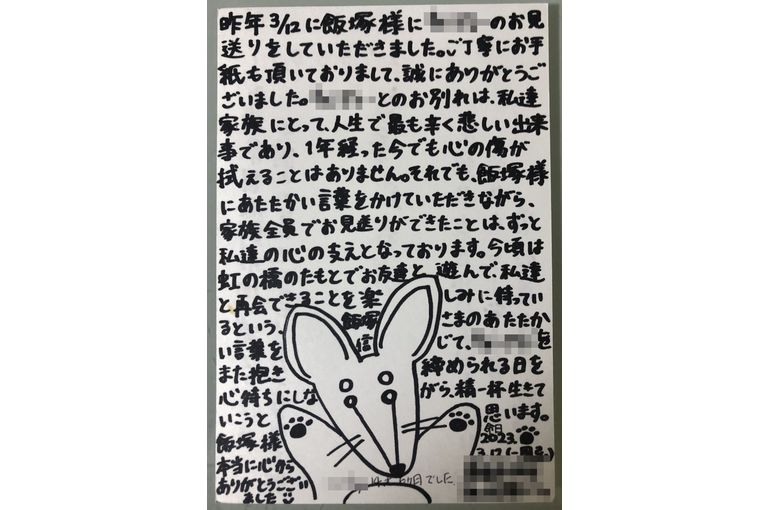 昨年3/12に飯塚様に のお見
送りをしていただきました。ご丁寧にお手
紙も頂いておりまして、誠にありがとうご
ざいました。 とのお別れは、私達
家族にとって、人生で最も辛く悲しい出来
事であり、1年経った今でも心の傷が
拭えることはありません。それでも、飯塚様
にあたたかい言葉をかけていただきながら、
家族全員でお見送りができたことは、ずっと
私達の心の支えとなっております。今頃は
虹の橋のたもとでお友達と遊んで、私達
と再会できることを楽しみに待ってい
るという、飯塚さまのあたたか
い言葉を信じて、 を
また抱き締められる日を
心待ちにしながら、精一杯生きて
いこうと思います。
飯塚様
本当に心から
ありがとうござい
ました
命日
2023.
3.12
でした。